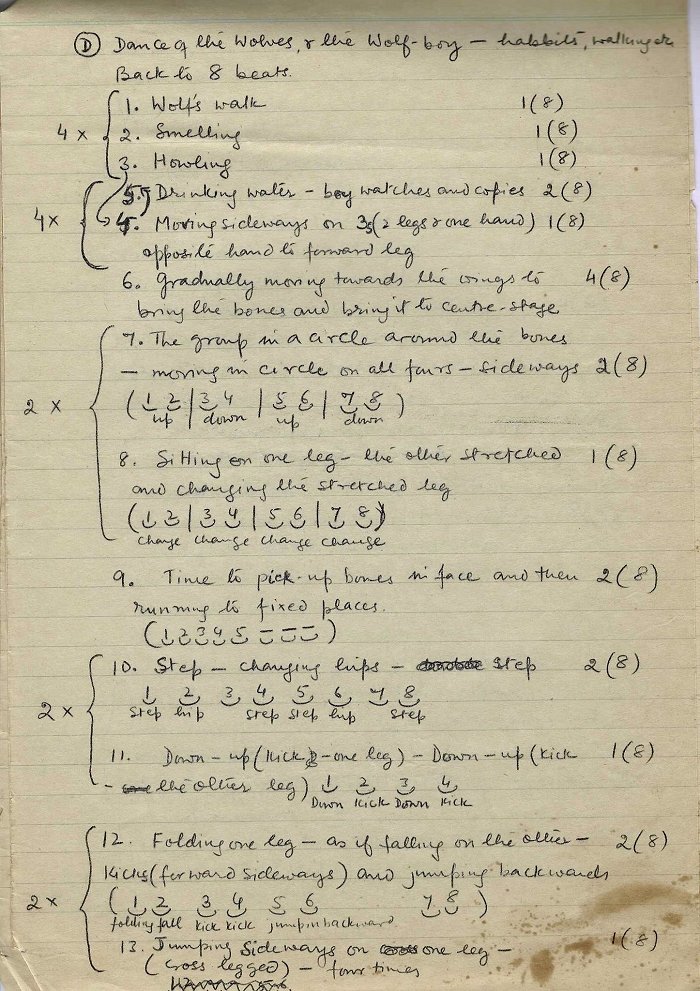 (D) Dance of the Wolves, & the Wolf-boy — habbits, walking etc
Back to 8 beats.
4 x { 1. Wolf's walk 1(8)
2. Smelling 1(8)
3. Howling 1(8)
4x { 5. Drinking water – boy watches and copies 2(8)
4. Moving sideways on 3s (2 legs & one hand) 1(8)
opposite hand to forward leg
6. Gradually moving towards the wings to 4(8)
bring the bones and bring it to centre-stage
2 x { 7. The group in a circle around the bones
– moving in circle on all fours – sideways 2(8)
( 1 2 | 3 4 | 5 6 | 7 8 )
up down up down
8. Sitting on one leg – the other stretched 1(8)
and changing the stretched leg
( 1 2 | 3 4 | 5 6 | 7 8 )
change change change change
9. Time to pick-up bones in face and then 2(8)
running to fixed places.
( 1 2 3 4 5 – – – )
2 x { 10. Step – changing hips – step 2(8)
1 2 3 4 5 6 7 8
step hip step step hip step
11. Down – up (kick – one leg) – Down – up (kick 1(8)
– the other leg) 1 2 3 4
Down kick Down kick
2 x { 12. Folding one leg – as if falling on the other – 2(8)
kicks (forward sideways) and jumping backwards
( 1 2 3 4 5 6 7 8 )
folding fall kick kick jump in backward
13. Jumping sideways on one leg – 1(8)
(cross legged) – four times